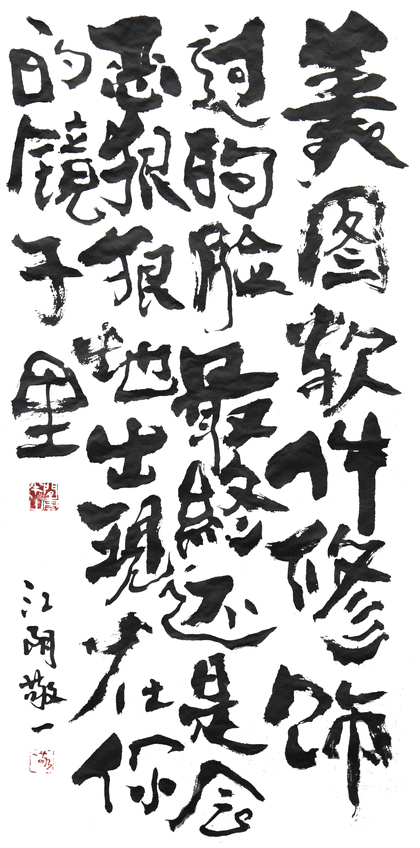 美图软件修饰
过的脸最终还是会
恶狠狠地出现在你
的镜子里
江阴敬一